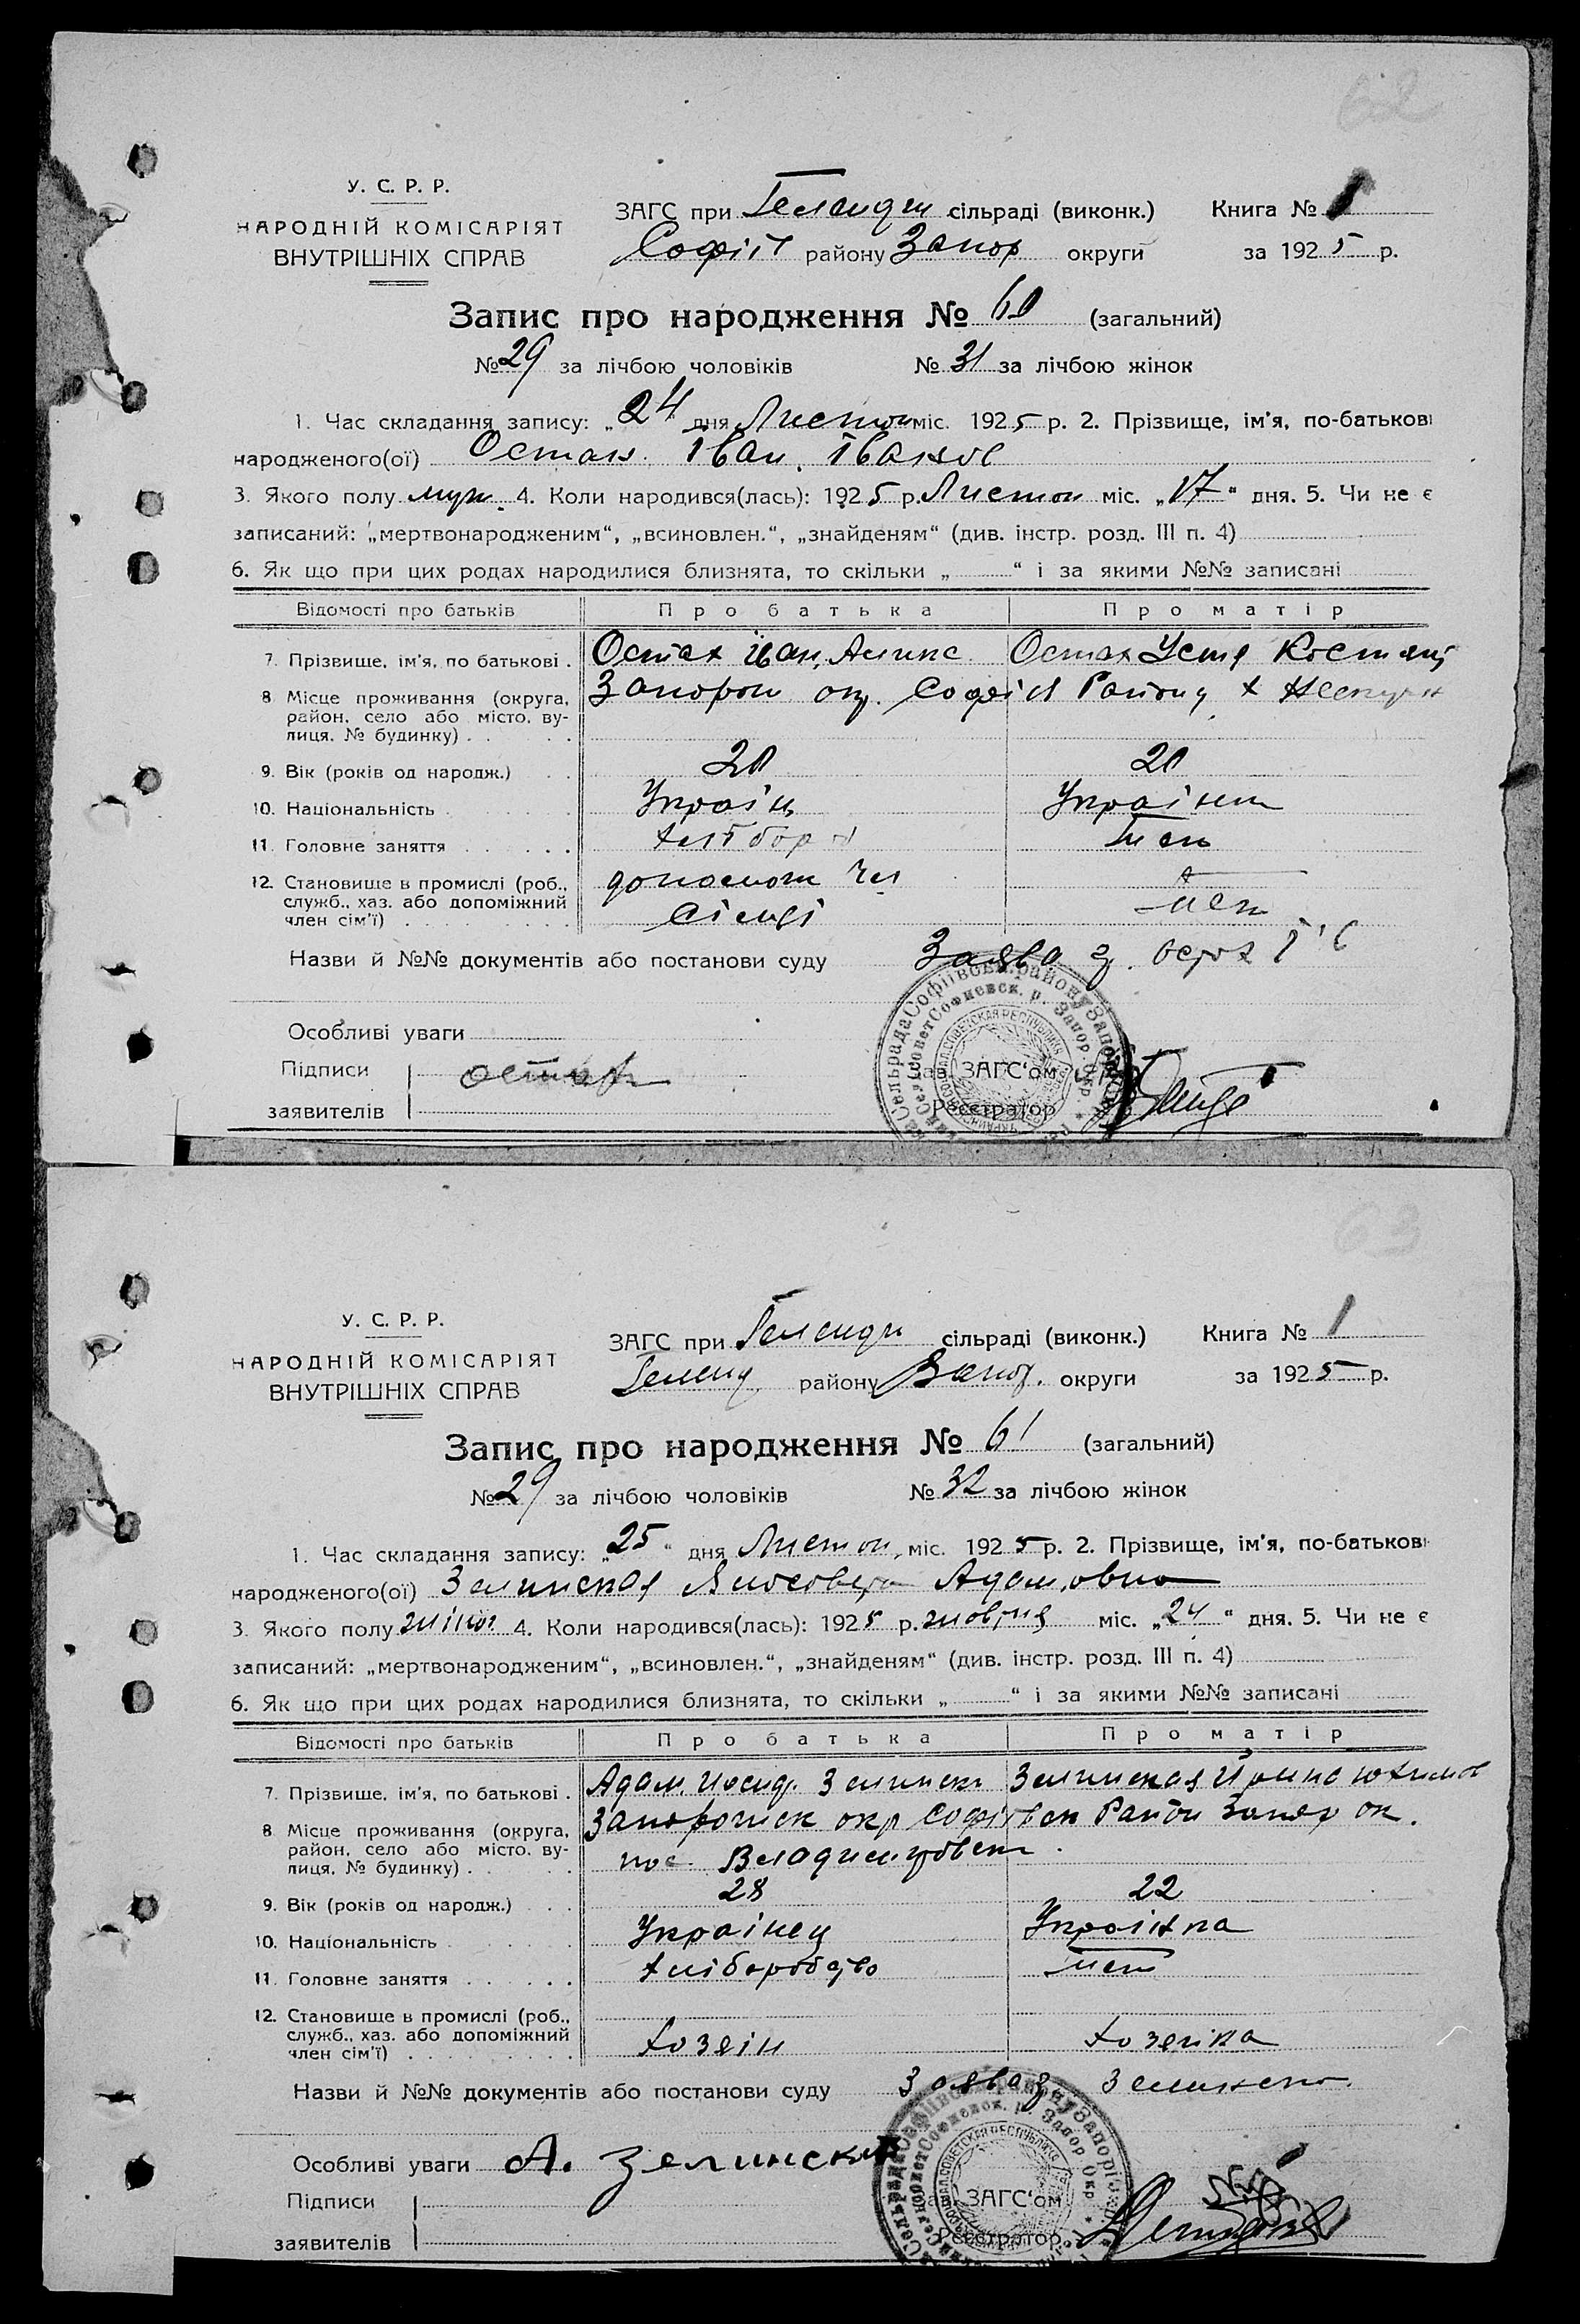 62
У. С. Р. Р.
НАРОДНІЙ КОМІСАРІЯТ
ВНУТРІШНІХ СПРАВ
ЗАГС при сільраді (виконк.) Книга № 1
Софіїв району Запор округи за 1925 р.
Запис про народження № 60 (загальний)
№ 29 за лічбою чоловіків № 31 за лічбою жінок
1. Час складання запису: „24" дня Листоп міс. 1925 р. 2. Прізвище, ім'я, по-батькові
народженого(ої) Остах Іван Іванов
3. Якого полу муж. 4. Коли народився(лась): 1925 р. Листоп міс. „17" дня. 5. Чи не є
записаний: „мертвонародженим", „всиновлен.", „знайденям" (див. інстр. розд. III п. 4)
6. Як що при цих родах народилися близнята, то скільки „ " і за якими №№ записані
Відомості про батьків Про батька Про матір
7. Прізвище, ім'я, по батькові . Остах Іван Остах Устя
8 Місце проживання (округа, Запорож окр. Софіїв Району х
район, село або місто, ву-
лиця, № будинку) . . . .
9. Вік (років од народж.) . . 20 20
10. Національність . . . . . Україн Українк
11. Головне заняття . . . . . . хлібор
12. Становище в промислі (роб., допомож чл
служб., хаз. або допоміжний
член сім'ї) . . . . . . . . . сімї
Назви й №№ документів або постанови суду Заява гр. Остах І
Особливі уваги
Підписи остах
заявителів
Зав. ЗАГС'ом
Реєстратор
63
У. С. Р. Р.
НАРОДНІЙ КОМІСАРІЯТ
ВНУТРІШНІХ СПРАВ
ЗАГС при сільраді (виконк.) Книга № 1
району Запор. округи за 1925 р.
Запис про народження № 61 (загальний)
№ 29 за лічбою чоловіків № 32 за лічбою жінок
1. Час складання запису: „25" дня Листоп. міс. 1925 р. 2. Прізвище, ім'я, по-батькові
народженого(ої) Зелинская Адамовна
3. Якого полу жіноч 4. Коли народився(лась): 1925 р. жовтня міс. „24" дня. 5. Чи не є
записаний: „мертвонародженим", „всиновлен.", „знайденям" (див. інстр. розд. III п. 4)
6. Як що при цих родах народилися близнята, то скільки „ " і за якими №№ записані
Відомості про батьків Про батька Про матір
7. Прізвище, ім'я, по батькові . Адам. Иосиф. Зелински Зелинская Юхимов
8 Місце проживання (округа, Запорожск окр Софіївск Район Запор ок.
район, село або місто, ву-
лиця, № будинку) . . . . пос.
9. Вік (років од народж.) . . . 28 22
10. Національність . . . . . Українец Українка
11. Головне заняття . . . . . . хліборобство
12. Становище в промислі (роб.,
служб., хаз. або допоміжний
член сім'ї) . . . . . . . . . хозяїн хозяїка
Назви й №№ документів або постанови суду Заява гр. Зелинско
Особливі уваги А. Зелинский
Підписи
заявителів
Зав. ЗАГС'ом
Реєстратор